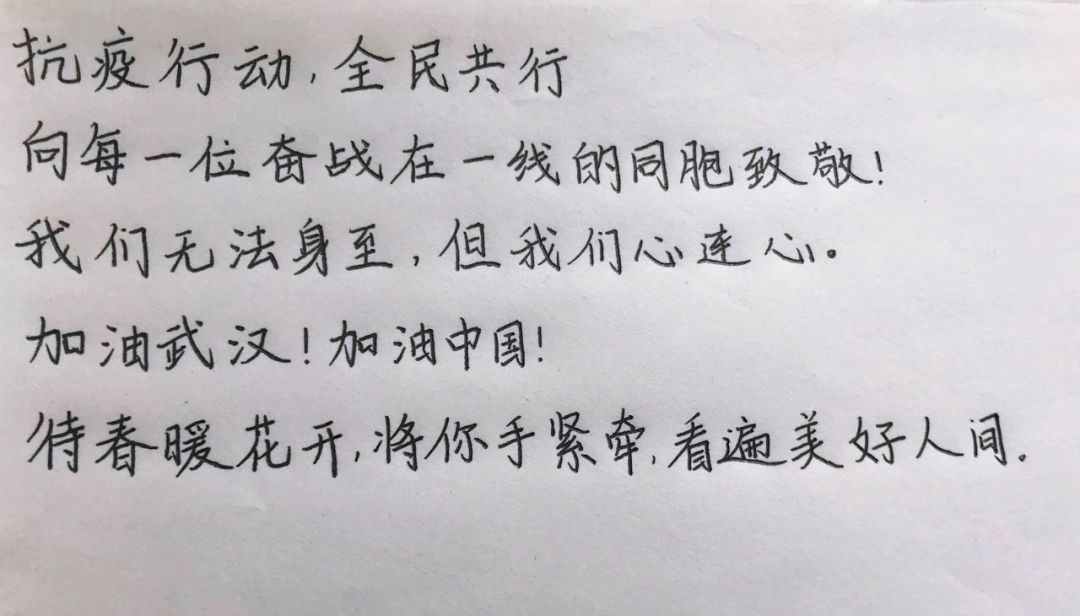 抗疫行动,全民共行
向每一位奋战在一线的同胞致敬!
我们无法身至,但我们心连心。
加油武汉!加油中国!
待春暖花开,将你手紧牵,看遍美好人间.